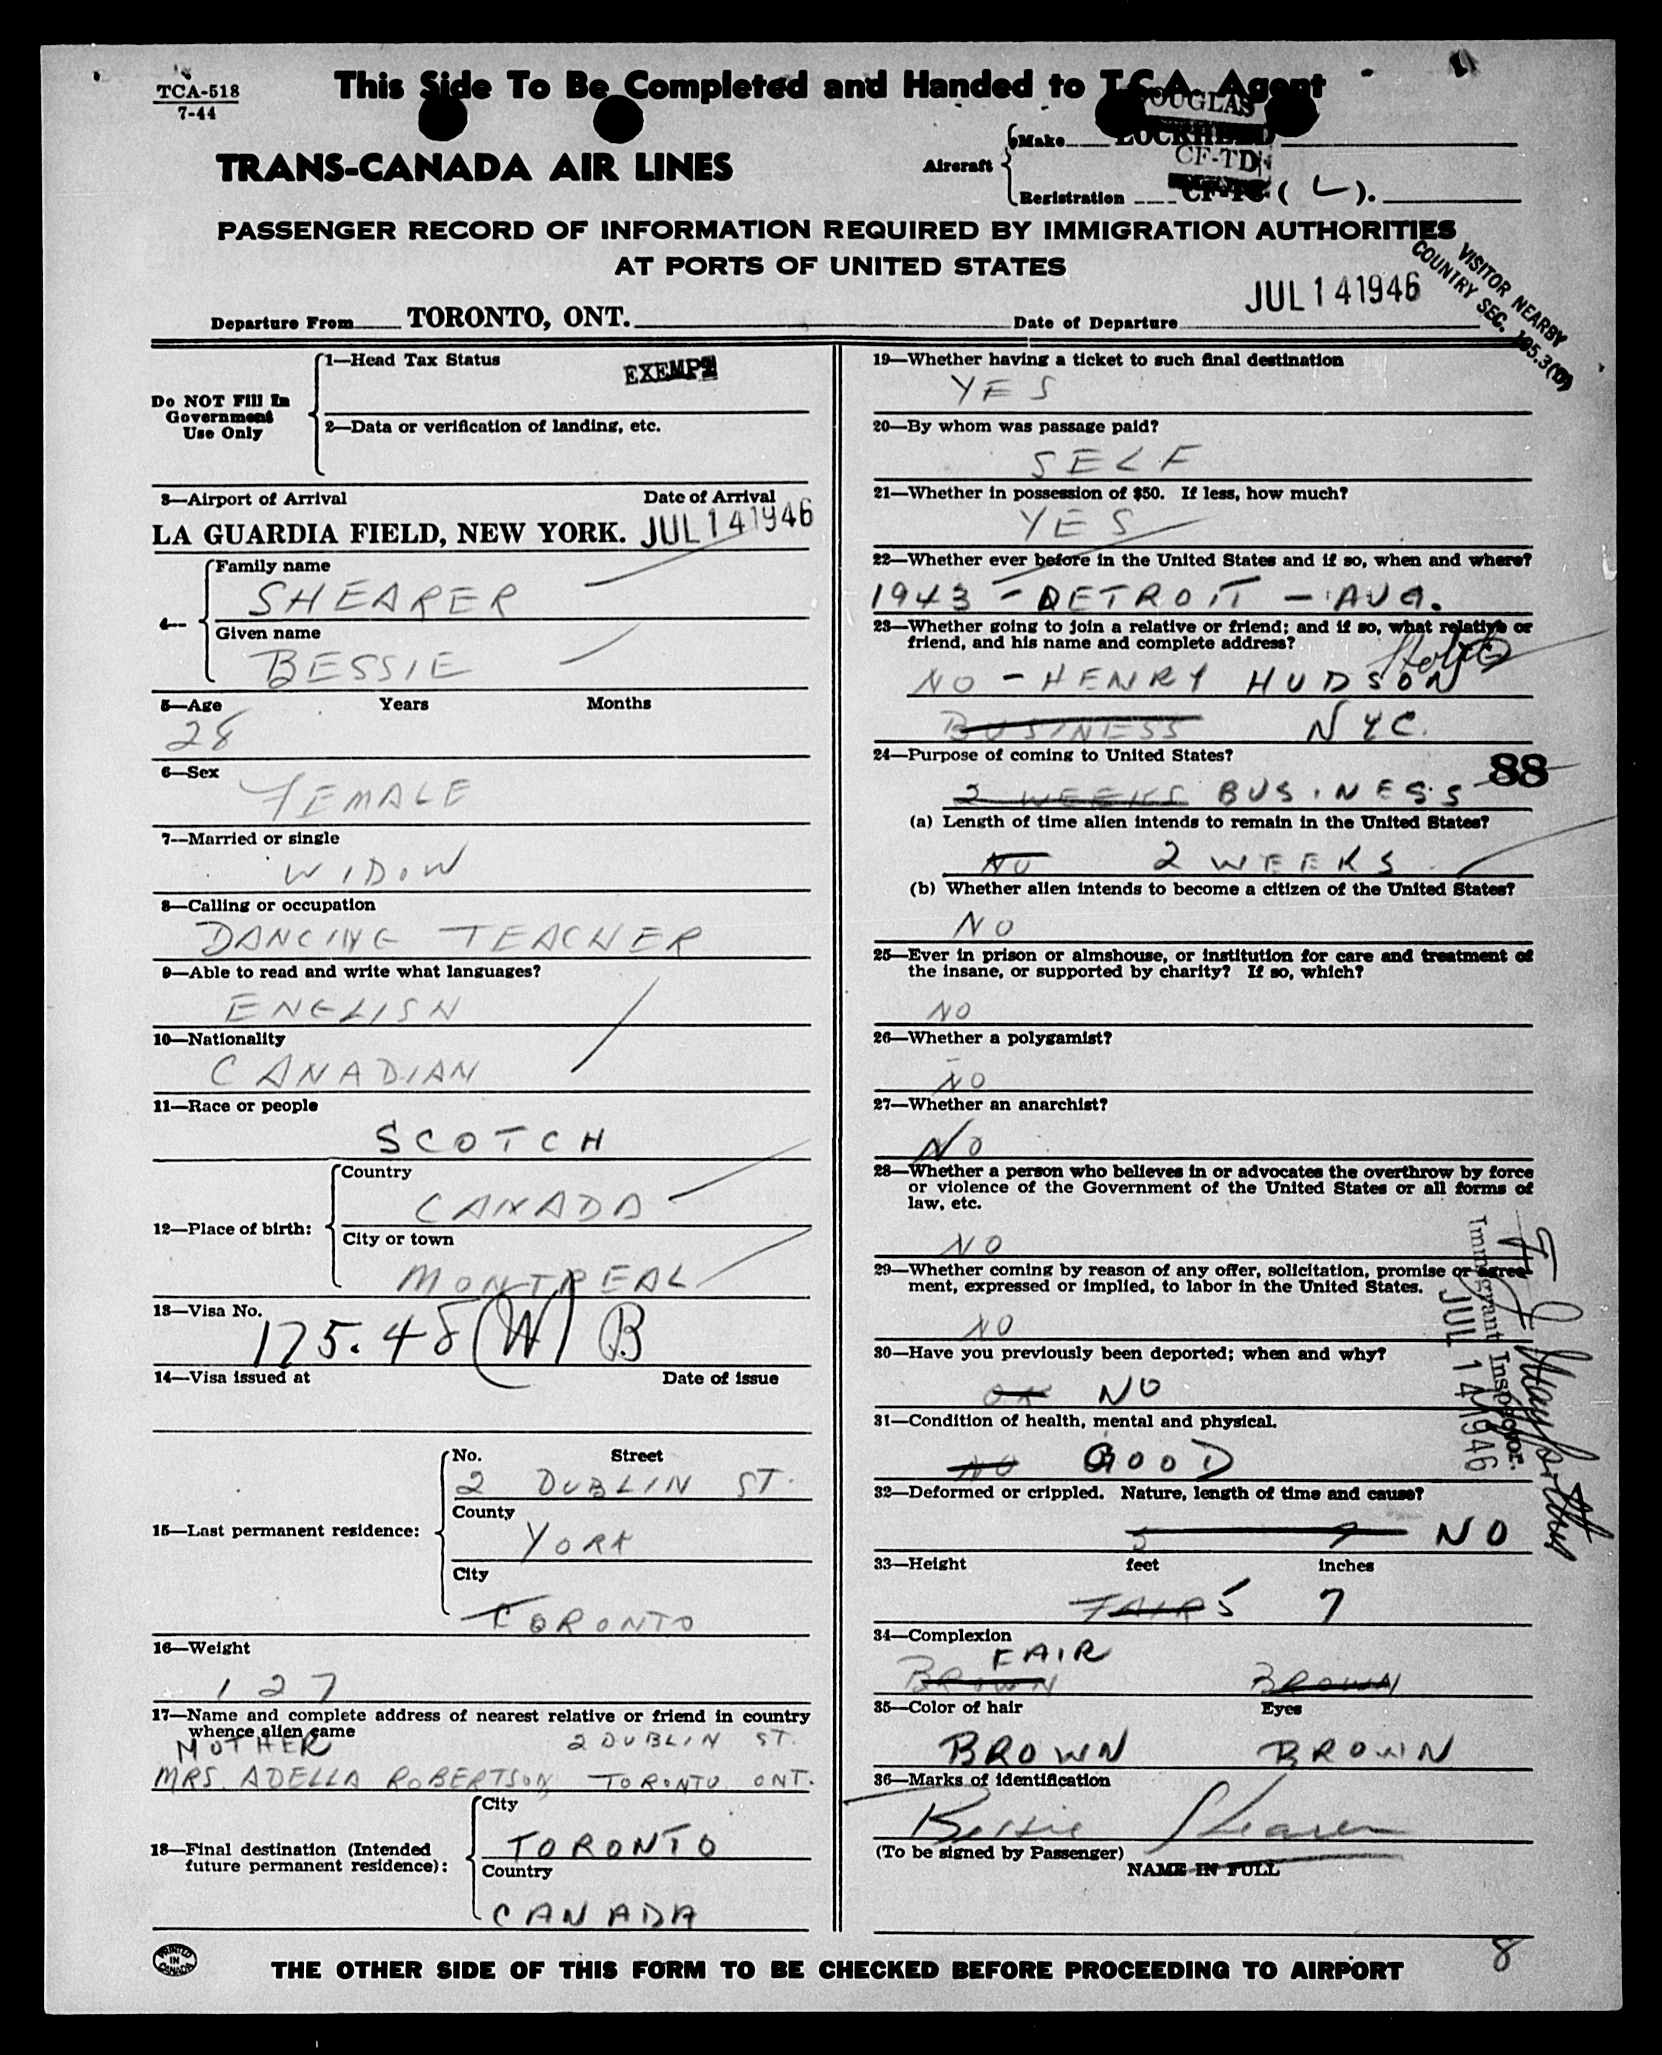 TCA-518
7-44
This Side To Be Completed and Handed to T.C.A. Agent
TRANS-CANADA AIR LINES
Aircraft
Make
DOUGLAS
LOCKHEED
CF-TD
Registration CF-TC ( L ).
PASSENGER RECORD OF INFORMATION REQUIRED BY IMMIGRATION AUTHORITIES
AT PORTS OF UNITED STATES
VISITOR NEARBY
COUNTRY SEC.
Departure From TORONTO, ONT.
Date of Departure JUL 14 1946
Do NOT Fill In
Government
Use Only
1—Head Tax Status EXEMPT
2—Data or verification of landing, etc.
3—Airport of Arrival Date of Arrival
LA GUARDIA FIELD, NEW YORK. JUL 14 1946
4—
Family name
SHEARER
Given name
BESSIE
5—Age Years Months
28
6—Sex
FEMALE
7—Married or single
WIDOW
8—Calling or occupation
DANCING TEACHER
9—Able to read and write what languages?
ENGLISH
10—Nationality
CANADIAN
11—Race or people
SCOTCH
12—Place of birth:
Country
CANADA
City or town
MONTREAL
13—Visa No.
175.48 (W) B
14—Visa issued at Date of issue
15—Last permanent residence:
No. Street
2 DUBLIN ST.
County
YORK
City
TORONTO
16—Weight
127
17—Name and complete address of nearest relative or friend in country
whence alien came
MOTHER 2 DUBLIN ST.
MRS. ADELLA ROBERTSON TORONTO ONT.
18—Final destination (Intended
future permanent residence):
City
TORONTO
Country
CANADA
19—Whether having a ticket to such final destination
YES
20—By whom was passage paid?
SELF
21—Whether in possession of $50. If less, how much?
YES
22—Whether ever before in the United States and if so, when and where?
1943 - DETROIT - AUG.
23—Whether going to join a relative or friend; and if so, what relative or
friend, and his name and complete address?
Hotel
NO - HENRY HUDSON
BUSINESS NYC.
24—Purpose of coming to United States?
88
2 WEEKS BUSINESS
(a) Length of time alien intends to remain in the United States?
NO 2 WEEKS
(b) Whether alien intends to become a citizen of the United States?
NO
25—Ever in prison or almshouse, or institution for care and treatment of
the insane, or supported by charity? If so, which?
NO
26—Whether a polygamist?
NO
27—Whether an anarchist?
NO
28—Whether a person who believes in or advocates the overthrow by force
or violence of the Government of the United States or all forms of
law, etc.
NO
29—Whether coming by reason of any offer, solicitation, promise or agree-
ment, expressed or implied, to labor in the United States.
NO
30—Have you previously been deported; when and why?
NO
31—Condition of health, mental and physical.
NO GOOD
32—Deformed or crippled. Nature, length of time and cause?
5 7 NO
33—Height feet inches
FAIR 5 7
34—Complexion
FAIR
BROWN BROWN
35—Color of hair Eyes
BROWN BROWN
36—Marks of identification
Bessie Shearer
(To be signed by Passenger)
NAME IN FULL
Immigrant Inspector.
JUL 14 1946
8
PRINTED
IN
CANADA
THE OTHER SIDE OF THIS FORM TO BE CHECKED BEFORE PROCEEDING TO AIRPORT